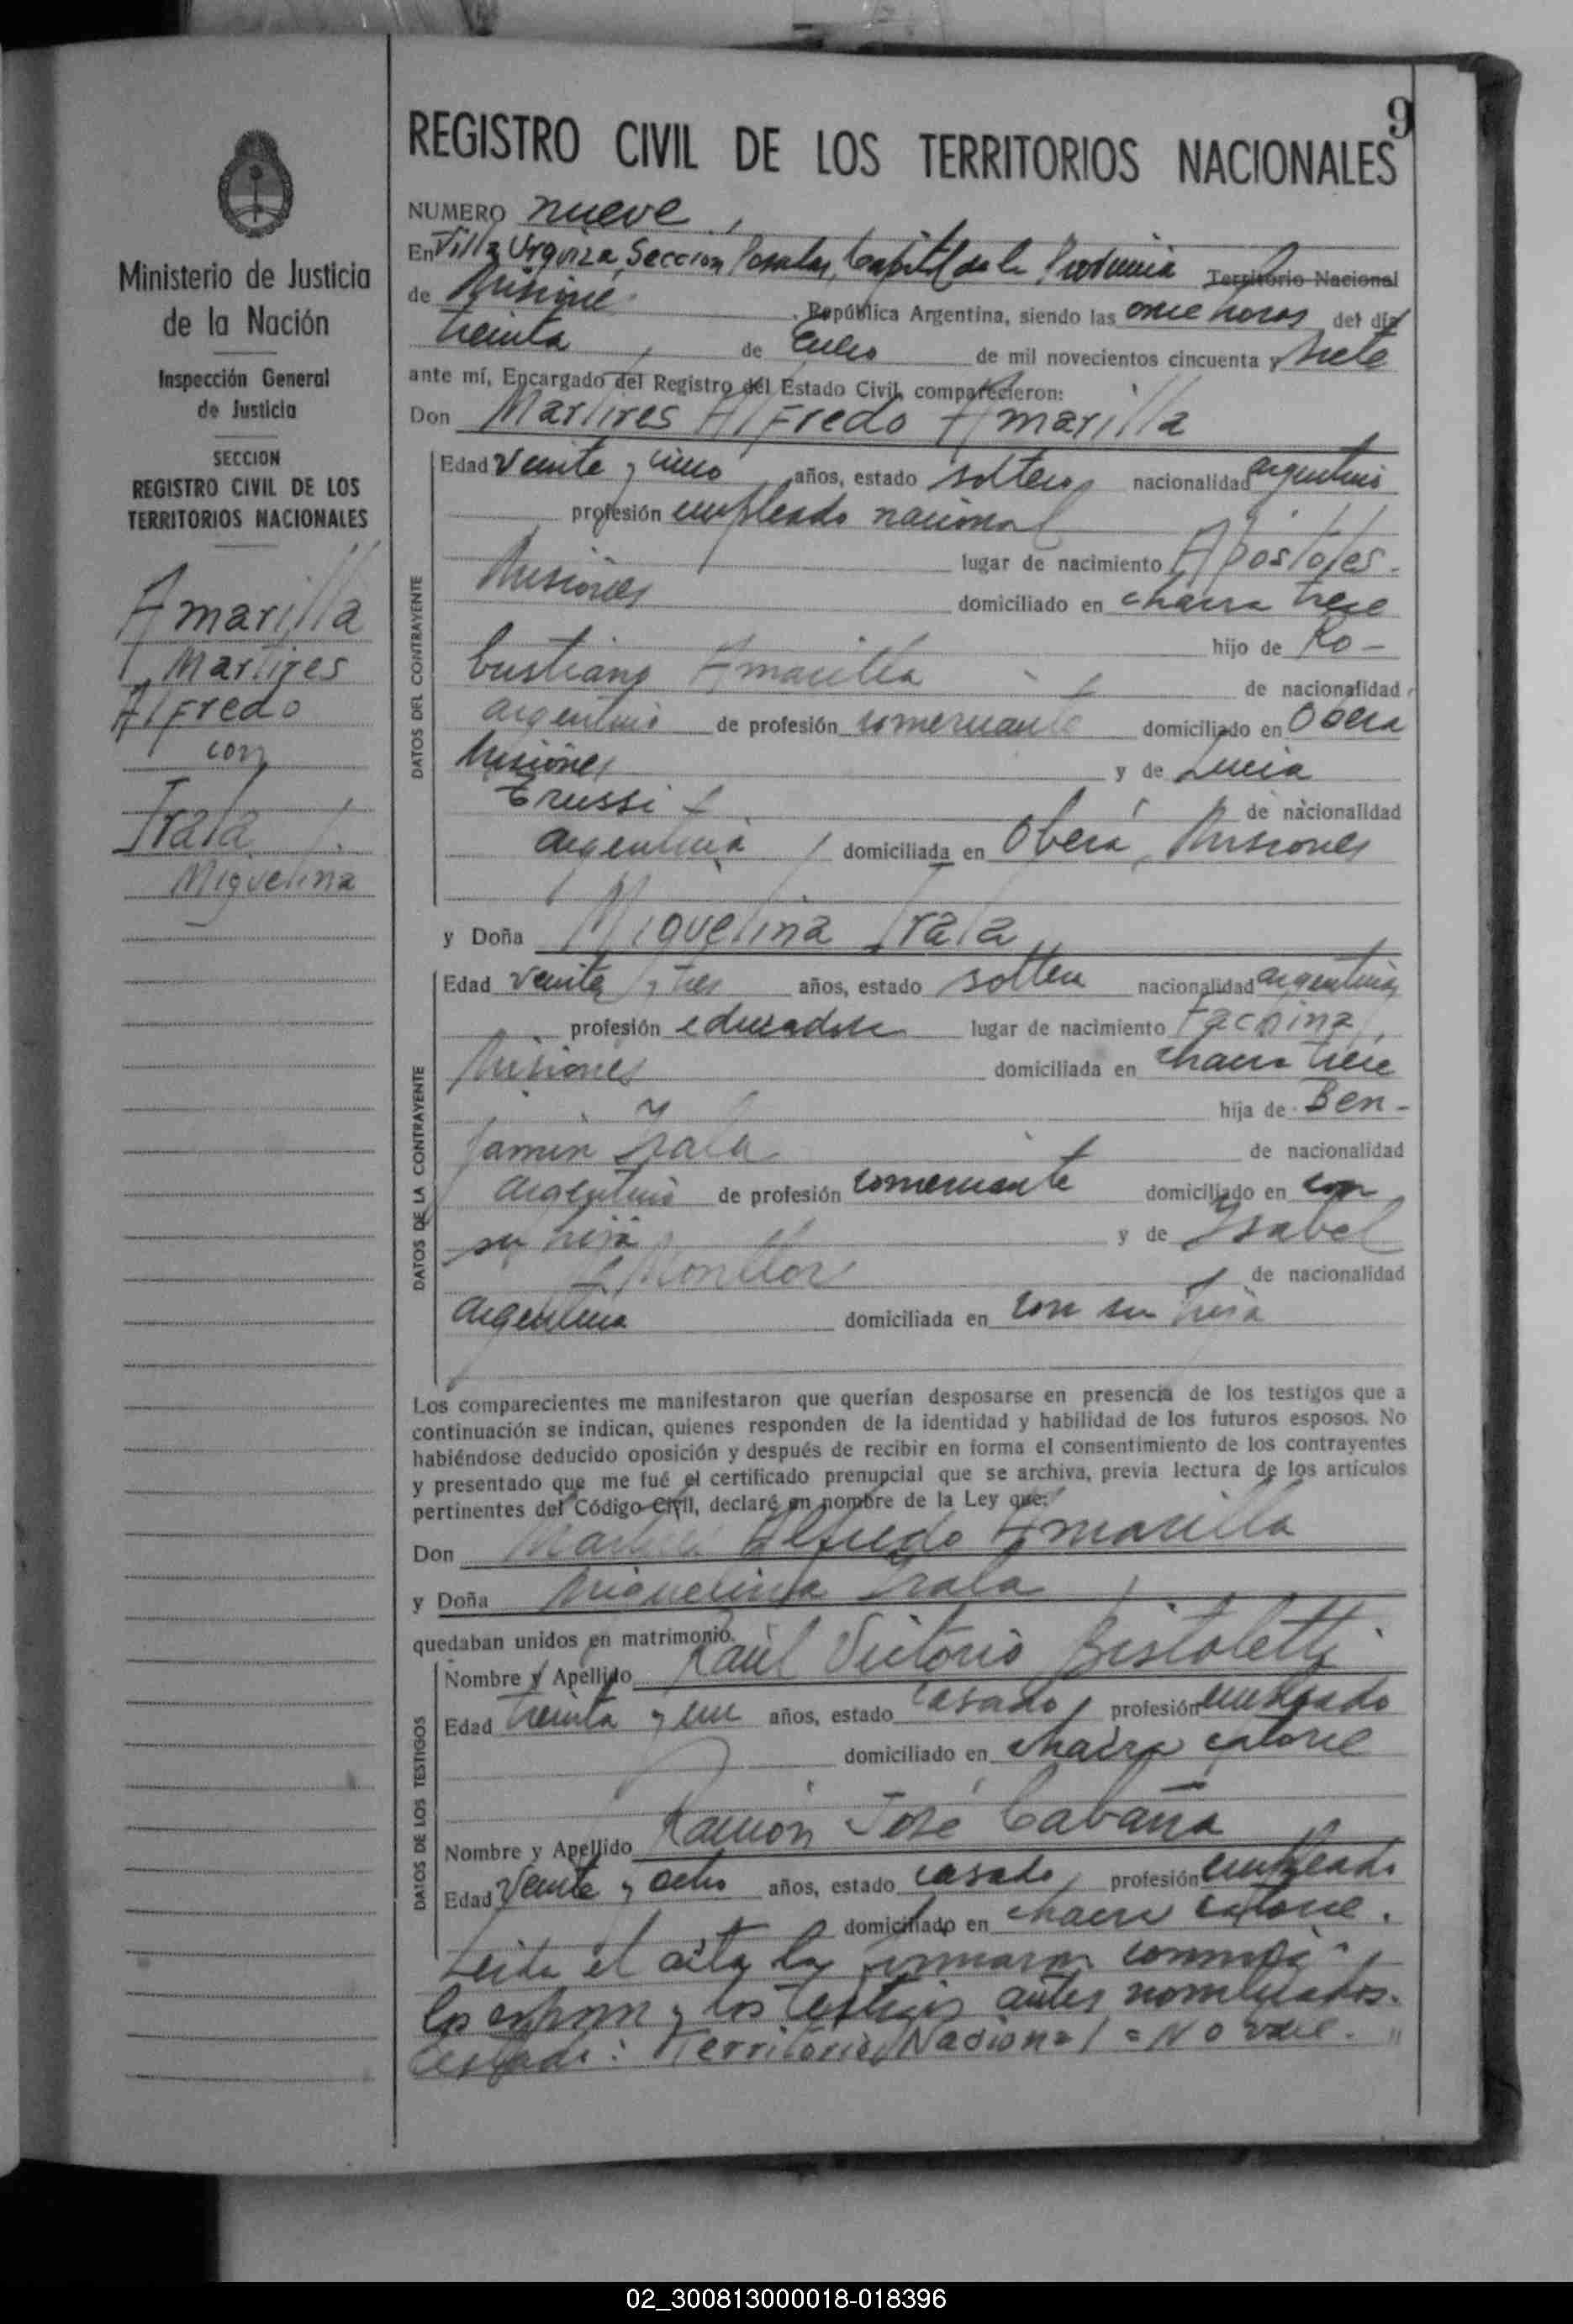 9
REGISTRO CIVIL DE LOS TERRITORIOS NACIONALES
NUMERO nueve
En Villa Urquiza, Seccion Posadas, Capital de la Provincia Territorio Nacional
de Misiones República Argentina, siendo las once horas del día
treinta de de mil novecientos cincuenta y siete
ante mí, Encargado del Registro del Estado Civil, comparecieron:
Don Martires Alfredo Amarilla
Edad veinte y cinco años, estado soltero nacionalidad argentino
profesión empleado nacional
lugar de nacimiento Apostoles.
Misiones domiciliado en chacra trece
hijo de Ro-
bustiano Amarilla de nacionalidad
argentino de profesión comerciante domiciliado en Obera
Misiones y de Lucia
de nacionalidad
argentina domiciliada en Oberá, Misiones
y Doña Miguelina Irala
Edad veinte y tres años, estado soltera nacionalidad argentina
profesión educadora lugar de nacimiento Fachinal,
Misiones domiciliada en chacra trece
hija de Ben-
jamin Irala de nacionalidad
argentino de profesión comerciante domiciliado en con
su hija y de Ysabel
de nacionalidad
argentina domiciliada en con su hija
Los comparecientes me manifestaron que querían desposarse en presencia de los testigos que a
continuación se indican, quienes responden de la identidad y habilidad de los futuros esposos. No
habiéndose deducido oposición y después de recibir en forma el consentimiento de los contrayentes
y presentado que me fué el certificado prenupcial que se archiva, previa lectura de los artículos
pertinentes del Código Civil, declaré en nombre de la Ley que:
Don Martires Alfredo Amarilla
y Doña Miguelina Irala
quedaban unidos en matrimonio.
Nombre y Apellido Raúl Victorio Bistoletti
Edad treinta y un años, estado casado, profesión empleado
domiciliado en chacra catorce
Nombre y Apellido Ramón José Cabaña
Edad veinte y ocho años, estado casado, profesión empleado
domiciliado en chacra catorce.
Leida el acta la firmaron conmigo,
los esposos y los testigos antes nombrados.
Testado: Territorio Nacional = No vale.
DATOS DEL CONTRAYENTE
DATOS DE LA CONTRAYENTE
DATOS DE LOS TESTIGOS
Ministerio de Justicia
de la Nación
Inspección General
de Justicia
SECCION
REGISTRO CIVIL DE LOS
TERRITORIOS NACIONALES
Amarilla
Martires
Alfredo
con
Irala
Miguelina
02_300813000018-018396